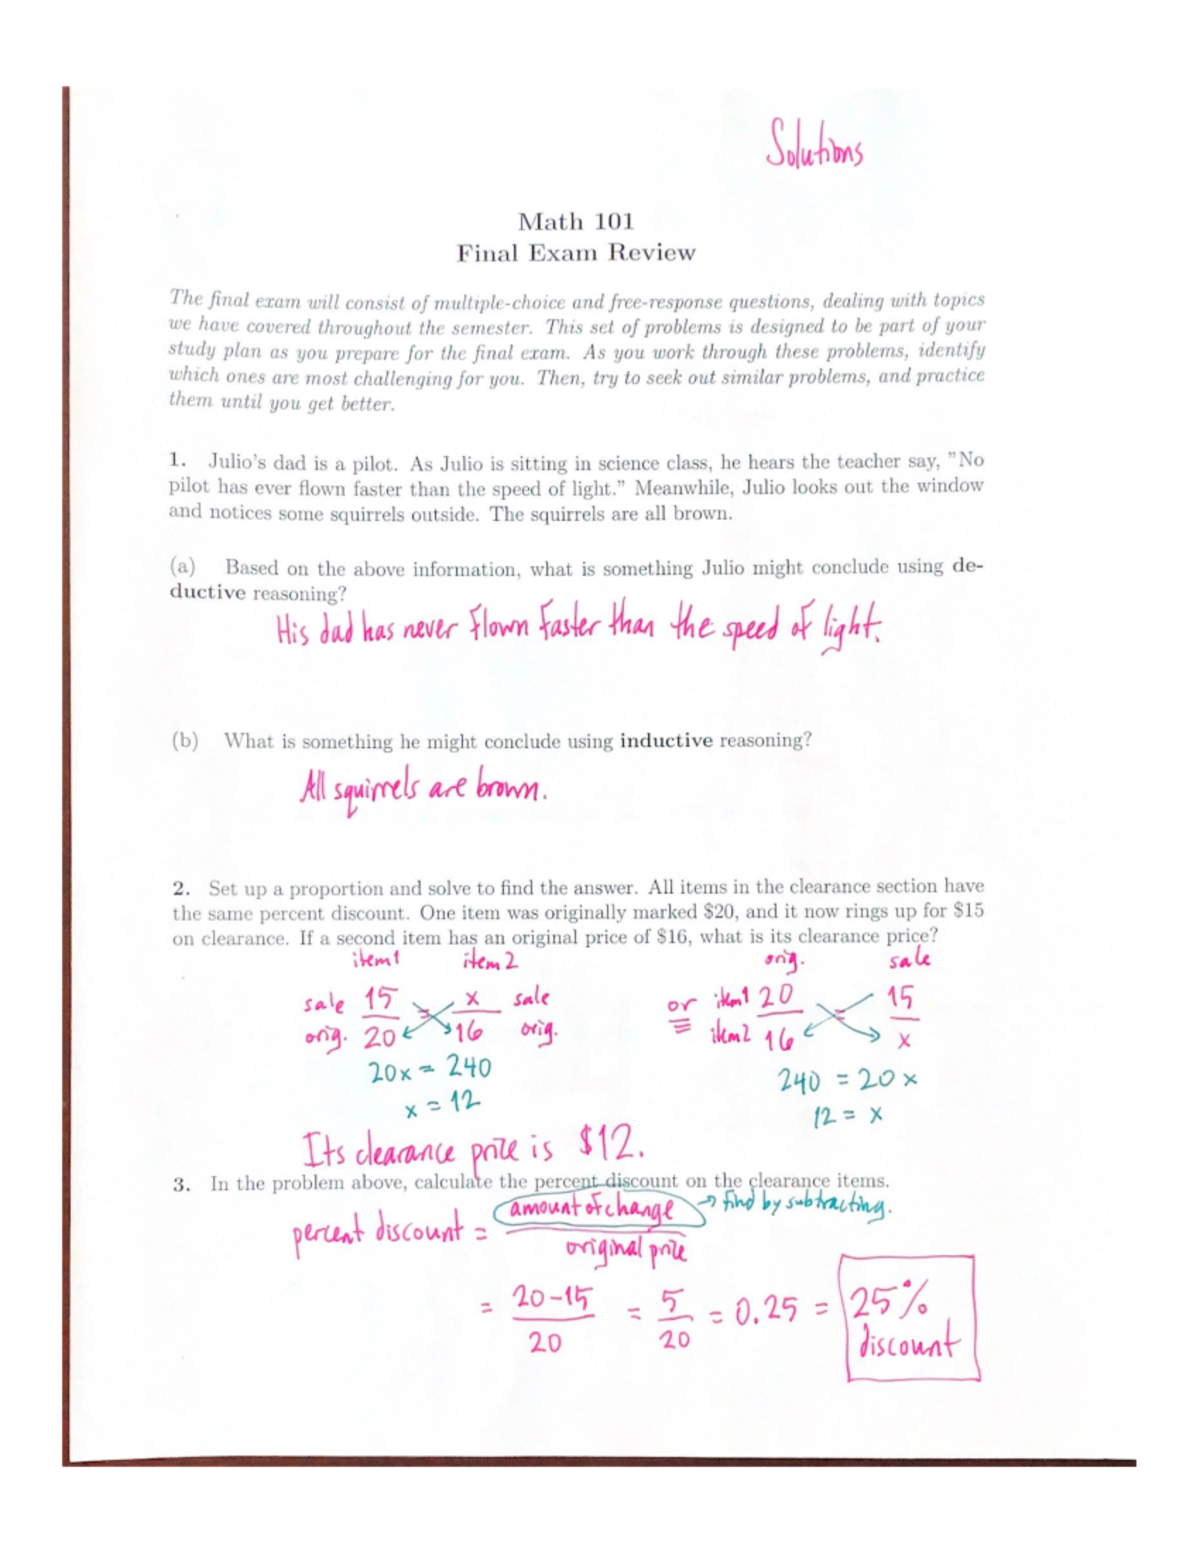 Solutions
Math 101
Final Exam Review
The final exam will consist of multiple-choice and free-response questions, dealing with topics
we have covered throughout the semester. This set of problems is designed to be part of your
study plan as you prepare for the final exam. As you work through these problems, identify
which ones are most challenging for you. Then, try to seek out similar problems, and practice
them until you get better.
1. Julio's dad is a pilot. As Julio is sitting in science class, he hears the teacher say, "No
pilot has ever flown faster than the speed of light." Meanwhile, Julio looks out the window
and notices some squirrels outside. The squirrels are all brown.
(a) Based on the above information, what is something Julio might conclude using de-
ductive reasoning?
His dad has never flown faster than the speed of light.
(b) What is something he might conclude using inductive reasoning?
All squirrels are brown.
2. Set up a proportion and solve to find the answer. All items in the clearance section have
the same percent discount. One item was originally marked $20, and it now rings up for $15
on clearance. If a second item has an original price of $16, what is its clearance price?
item1 item2
sale 15 = x sale
orig. 20 16 orig.
20x = 240
x = 12
orig. sale
or item1 20 = 15
item2 16 x
240 = 20x
12 = x
Its clearance price is $12.
3. In the problem above, calculate the percent discount on the clearance items.
percent discount = amount of change → find by subtracting.
original price
= 20-15 = 5 = 0.25 = 25%
20 20 discount